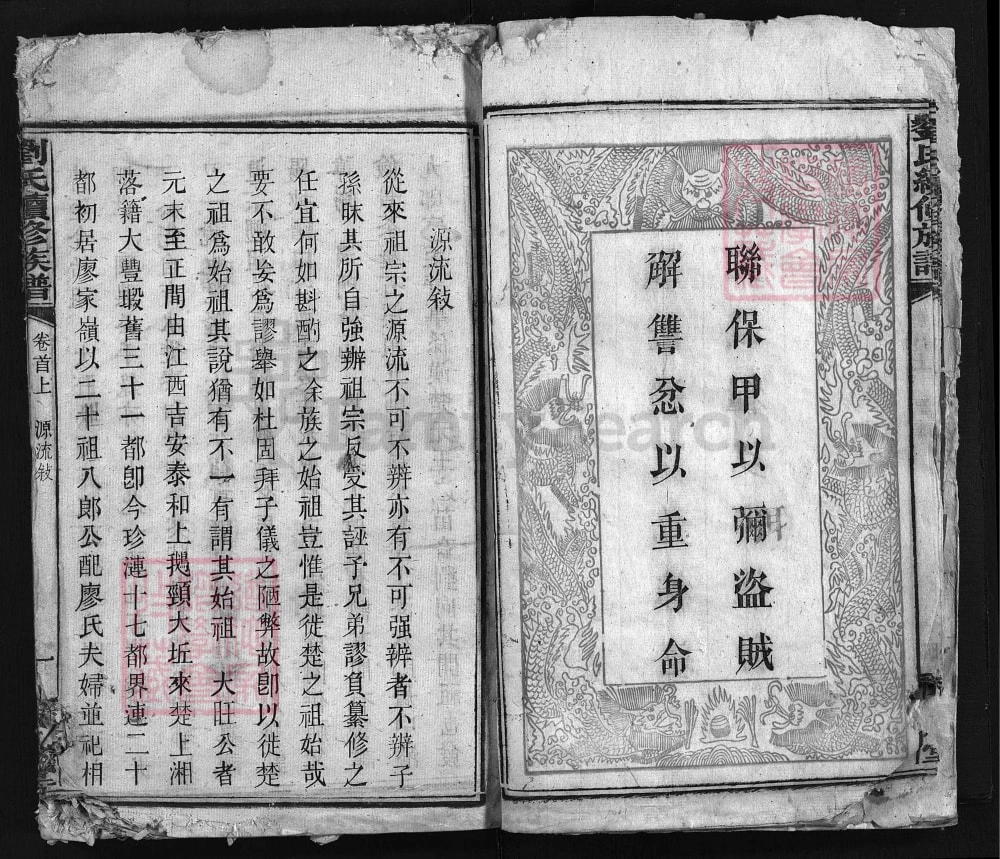 劉氏續修族譜
聯保甲以彌盜賊
解讐忿以重身命
源流敍
從來祖宗之源流不可不辨亦有不可强辨者不辨子
孫昧其所自強辨祖宗反受其誣予兄弟謬負纂修之
任宜何如斟酌之余族之始祖豈惟是徙楚之祖始哉
要不敢妄爲謬舉如杜固拜子儀之陋弊故卽以徙楚
之祖爲始祖其說猶有不一有謂其始祖 大旺公者
元末至正間由江西吉安泰和上鵝頸大坵來楚上湘
落籍大豐嘏舊三十一都卽今珍漣十七都界連二十
都初居廖家嶺以二十祖八郞公配廖氏夫婦並祀相
劉氏續修族譜
卷首上
源流敍
一
FamilySearch